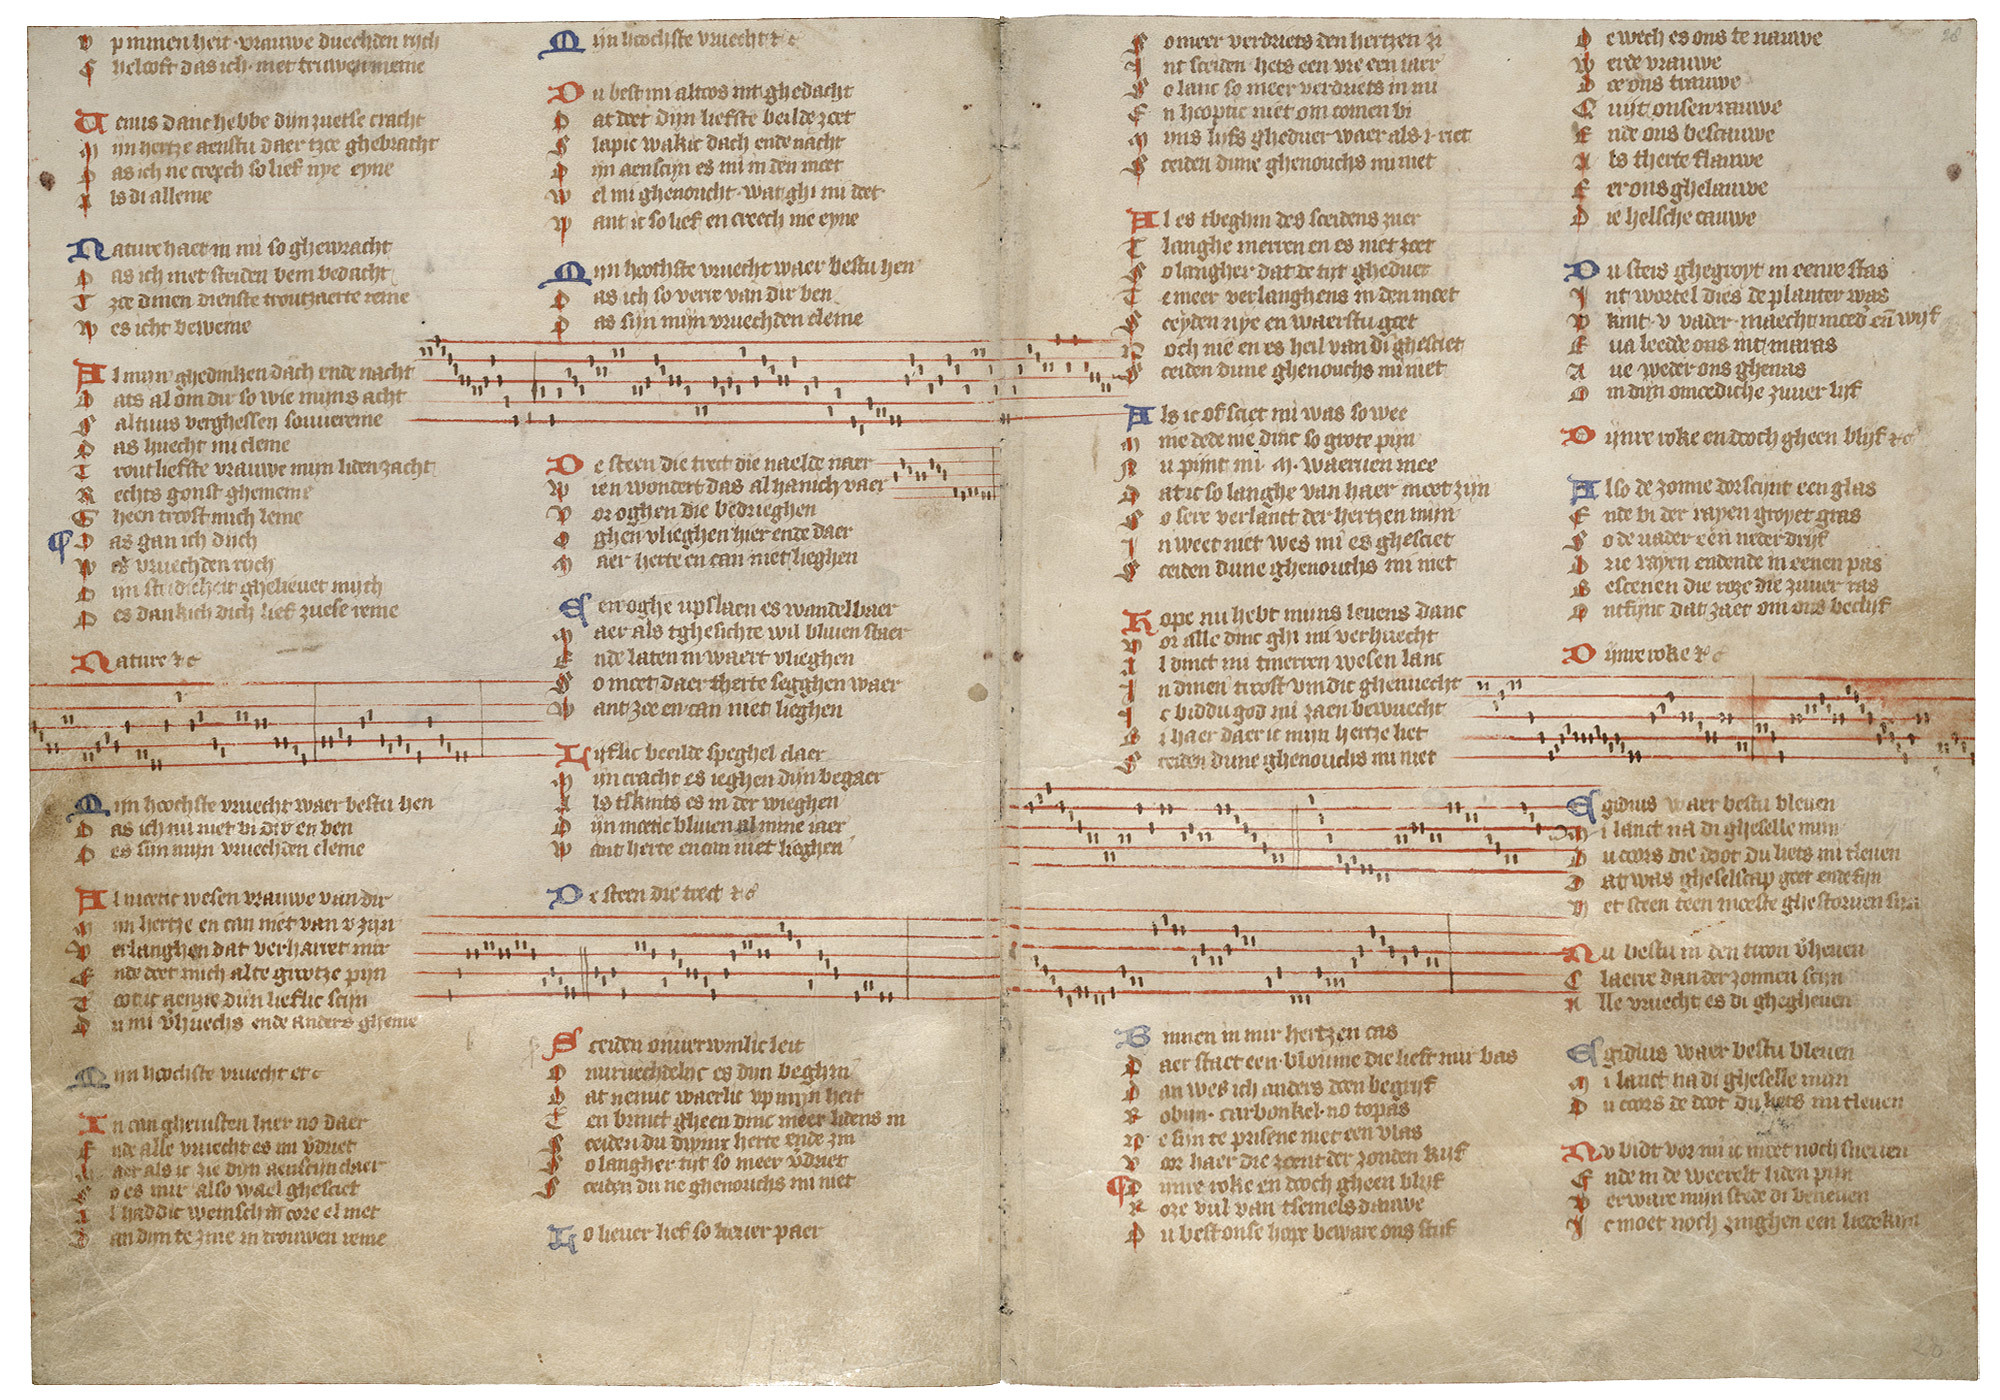 V p minen heit vrauwe duechden rijch
G heloeft das ich met truwen meine
V enus danc hebbe dijn zuetse cracht
M ijn hertze aenstu daer tzoe ghebracht
D as ich ne creech so lief nye eyne
A ls di alleine
N ature haet in mi so ghewracht
D as ich met steiden bem bedacht
T zoe dinen dienste troutzaerte reine
W es icht beweine
A l mijn ghedinken dach ende nacht
D ats al om dir so wie mijns acht
S altuus verghessen souuereine
D as huecht mi cleine
T rout liefste vrauwe mijn liden zacht
R echts gonst ghemeine
G heen troost mich leine
D as gan ich duch
W es vruechden rijch
D ijn stedicheit ghelieuet mijch
D es dankich dich lief zuese reine
N ature &c
M ijn hoochste vruecht waer bestu hen
D as ich nu niet bi dir en ben
D es sijn mijn vruechden cleine
A l moetic wesen vrauwe van dir
M ijn hertze en can niet van v zijn
V erlanghen dat verhauret mir
E nde doet mich alte grootze pijn
T ootic aenzie dijn lieflic scijn
D u mi vhuechs ende anders gheine
M ijn hoochste vruecht etc
I n can gherusten hier no daer
E nde alle vruecht es mi vdriet
M aer als ic zie dijn aenscijn claer
S o es mir also wael ghesciet
A l haddic weinsch in core el niet
D an dijn te zine in trouwen reine
M ijn hoochste vruecht &c
D u best mi altoos int ghedacht
D at doet dijn liefste beilde zoet
S lapic wakic dach ende nacht
D ijn aenscijn es mi in den moet
W el mi ghenoucht wat ghi mi doet
W ant ic so lief en creech nie eyne
M ijn hoochste vruecht waer bestu hen
D as ich so verre van dir ben
D as sijn mijn vruechden cleine
D e steen die trect die naelde naer
W ien wondert das al hanich vaer
V or oghen die bedrieghen
O ghen vlieghen hier ende daer
M aer herte en can niet lieghen
E en oghe upslaen es wandelbaer
M aer als tghesichte wil bliuen staer
E nde laten in waert vlieghen
S o moet daer therte segghen waer
W ant zoe en can niet lieghen
L ijflic beeilde speghel claer
M ijn cracht es ieghen dijn begaer
A ls tskints es in der wieghen
D ijn moetic bliuen al mine iaer
W ant herte en can niet lieghen
D e steen die trect &c
S ceiden onuerwinlic leit
O nuruechdelijc es dijn beghin
D at neinic waerlic vp mijn heit
T en brinct gheen dinc meer lidens in
S ceiden du dwinx herte ende zin
S o langher tijt so meer vdriet
S ceiden du ne ghenouchs mi niet
L o lieuer lief so lieuer paer
S o meer verdriets den hertzen zi
I nt sceiden hets een vre een iaer
S o lanc so meer verdriets in mi
E n hooptic niet om comen bi
M ijns lijfs gheduer waer als i riet
S ceiden dune ghenouchs mi niet
A l es tbeghin des sceidens zuer
T langhe merren en es niet zoet
S o langher dat de tijt gheduer
T e meer verlanghens in den moet
S ceyden nye en waerstu goet
N och nie en es heil van di ghesciet
S ceiden dune ghenouchs mi niet
A ls ic of sciet mi was so wee
M ine dede nie dinc so grote pijn
N u pijnt mi M waeruen mee
D at ic so langhe van haer moet zijn
S o sere verlanct der hertzen mijn
I n weet niet wes mi es ghesciet
S ceiden dune ghenouchs mi niet
H ope nu hebt mijns leuens danc
V or alle dinc ghi mi verhuecht
A l dinct mi tmerren wesen lanc
I n dinen troost vindic ghenuecht
I c biddu god mi zaen bewuecht
B i haer daer ic mijn hertze liet
S ceiden dune ghenouchs mi niet
B innen in mir hertzen cas
D aer staet een bloume die lieft mir bas
D an wes ich anders doen begrijf
R obijn carbonkel no topas
N e sijn te prisene niet een vlas
V or haer die zoent der zonden kijf
D ijnre roke en dooch gheen blijf
R oze vul van tsemels dauwe
D u best onse hope beware ons stijf
D e wech es ons te nauwe
W erde vrauwe
D oe ons trauwe
C uijt onsen rauwe
E nde ons bescauwe
A ls therte flauwe
E er ons ghelauwe
D ie helsche cauwe
D u steis ghegroyt in eenre stas
I nt wortel dies de planter was
D kint v vader maecht moeder en wijf
E ua leedde ons int maras
A ue weder ons ghenas
O m dijn omoediche zuuer lijf
D ijnre roke en dooch gheen blijf &c
A lso de zonne dorscijnt een glas
E nde bi der rayen groyet gras
S o de vader een neder drijf
D rie rayen endende in eenen pas
B escenen die roze die zuuer ras
O ntfijnc dat zaet om ons beclijf
D ijnre roke &c
E gidius waer bestu bleuen
M i lanct na di gheselle mijn
D u coors die doot du liets mi tleuen
D at was gheselscap goet ende fijn
H et sceen teen moeste ghestoruen sijn
N u bestu in den troon vheuen
C laerre dan der zonnen scijn
A lle vruecht es di ghegheuen
E gidius waer bestu bleuen
M i lanct na di gheselle mijn
D u coors de doot du liets mi tleuen
N v bidt vor mi ic moet noch sneuen
E nde in de weerelt liden pijn
V erware mijn stede di beneuen
I c moet noch zinghen een liedekijn